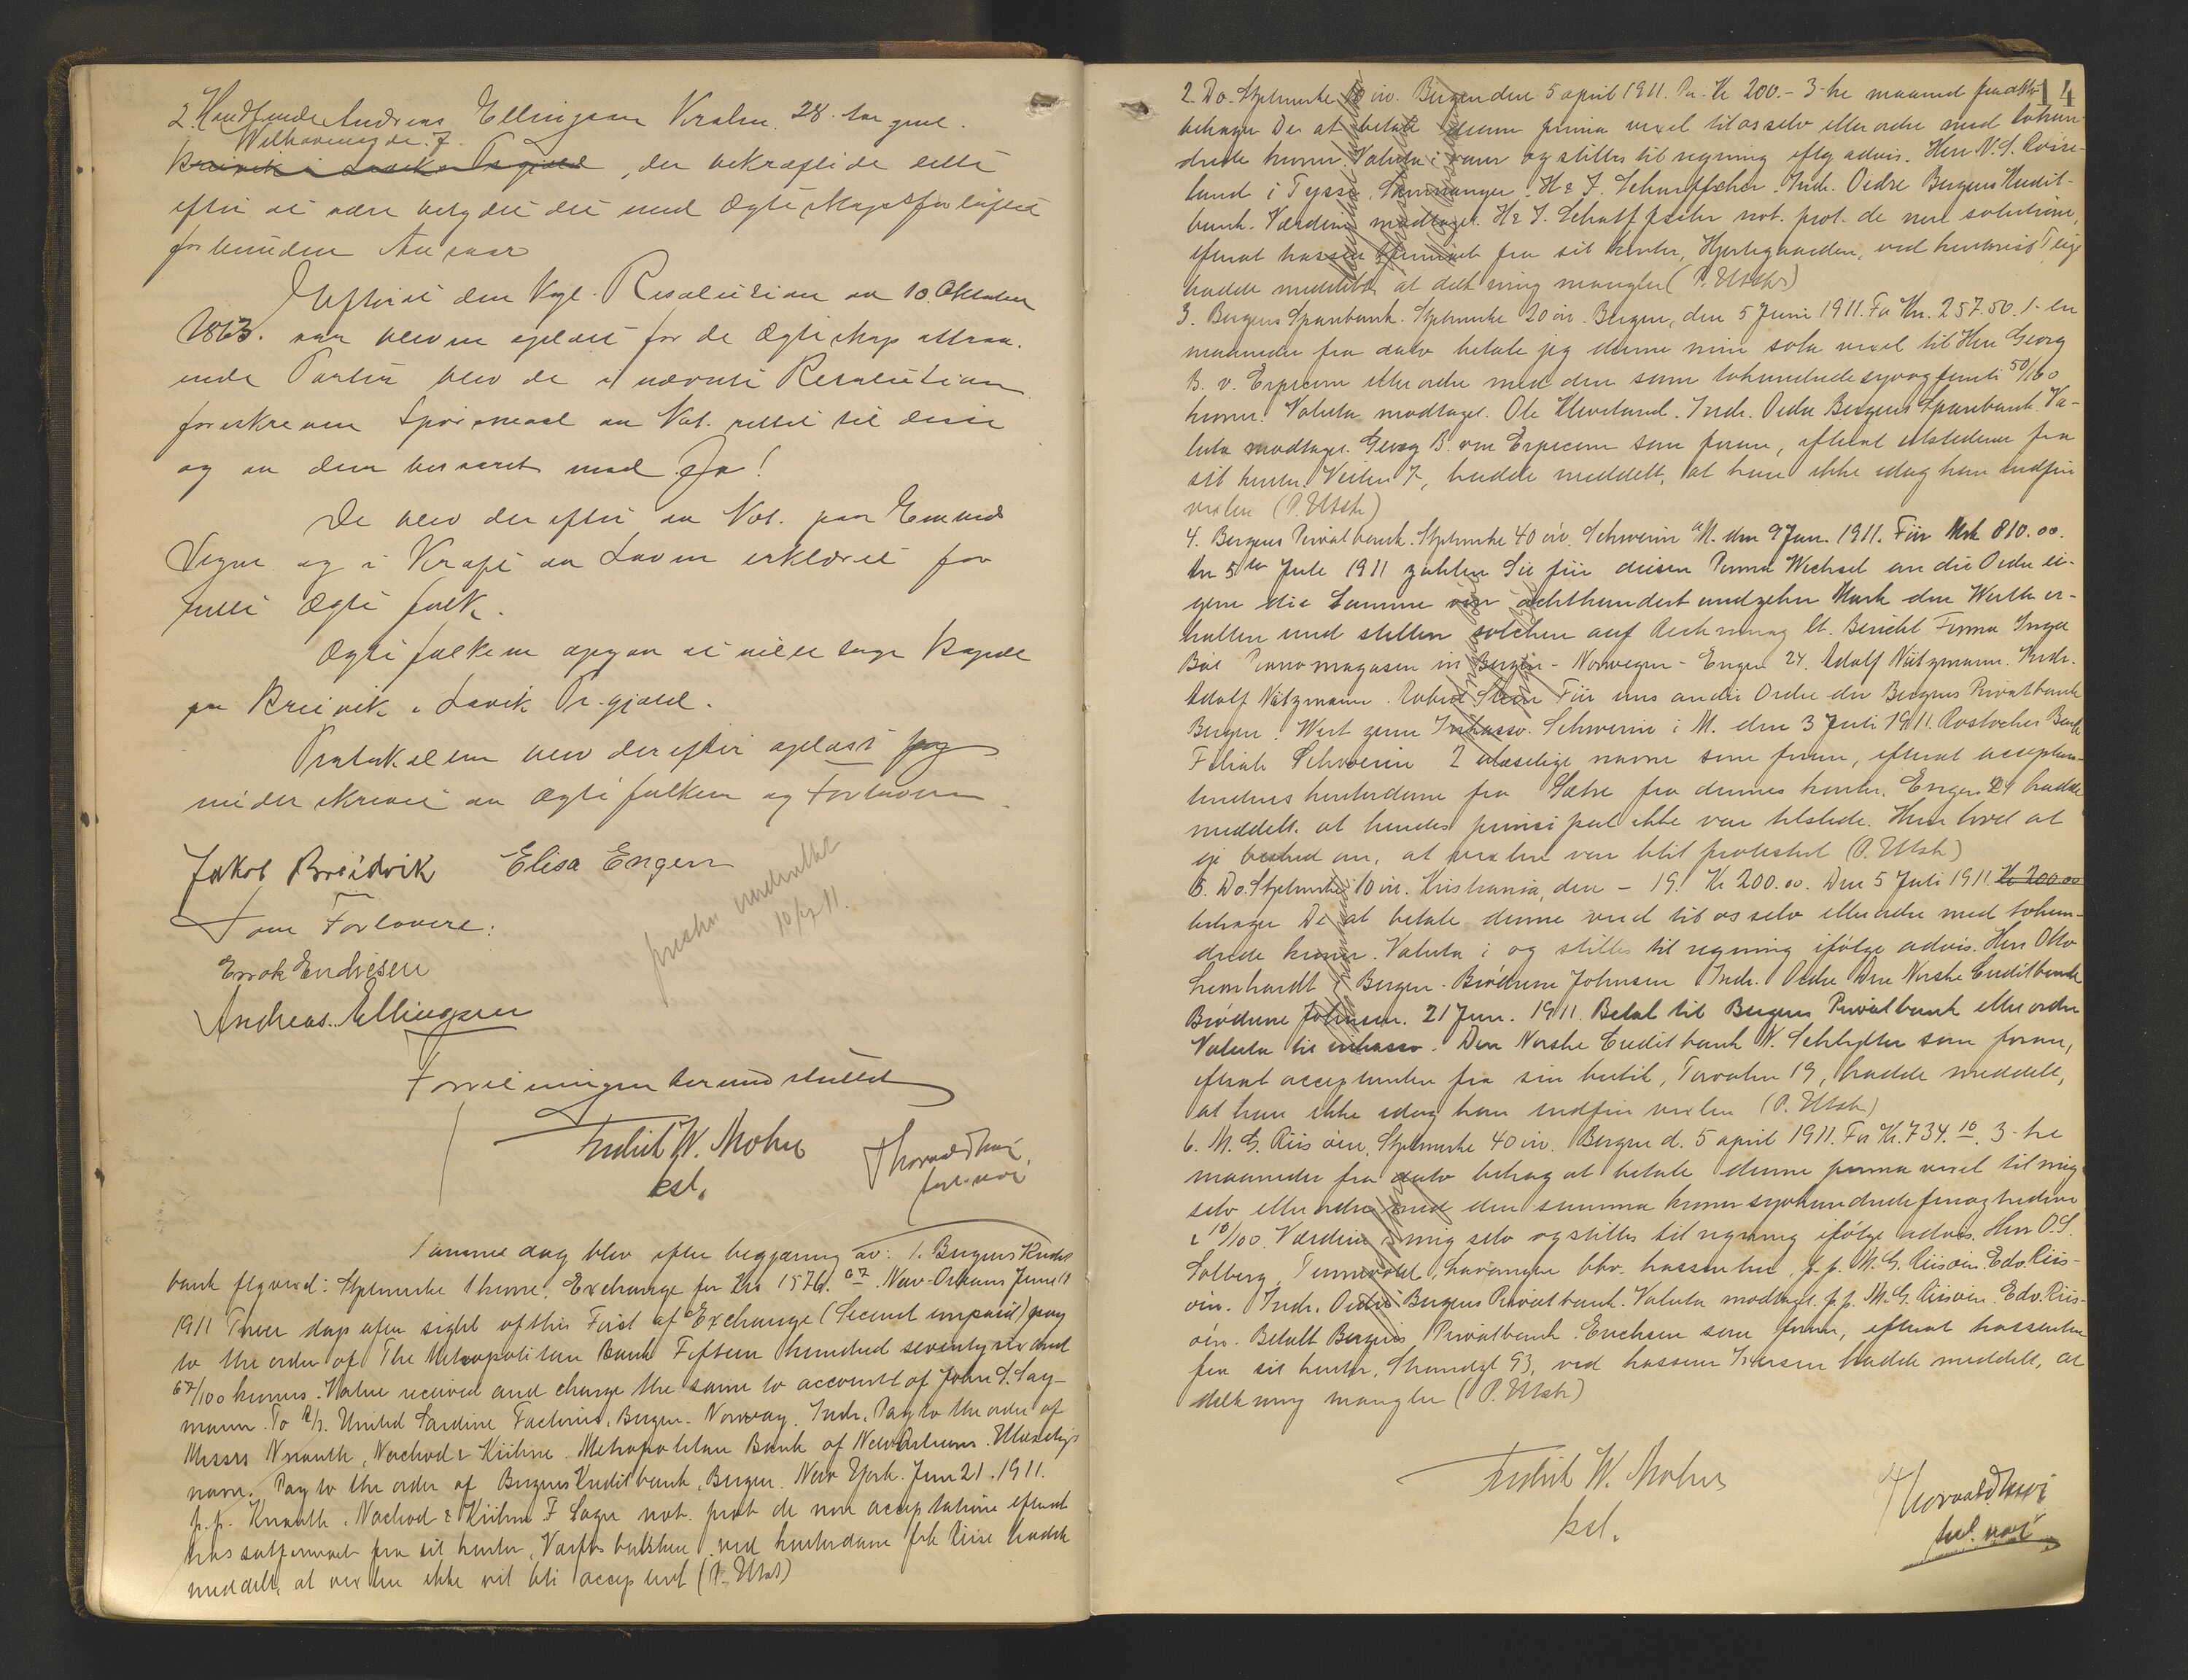 2. Handlende Andreas Ellingsen 28. aar gml.
Welhavensgde. 7.
Breivik i Lavik Pr.gjeld, der bekræftede dette
efter at være betydet det med Ægteskapsforløftet
forbundne Ansvar
Efterat den Kgl. Resolution av 10. Oktober
1863. var blevne oplæst for de Ægteskap attraa-
ende Parter blev de i nævnte Resolution
foreskrevne Spørsmaal av Not. rettet til disse
og av dem besvaret med Ja!
De blev derefter av Not. paa Embeds
Vegne og i Kraft av Loven erklæret for
rette Ægtefolk.
Ægtefolkene opgav at ville tage Bopæl
paa Breivik i Lavik Pr.gjæld.
Protokollen blev derefter oplæst og
underskrevet av Ægtefolkene og Forloverne.
Jakob Breidvik Elisa Engen
Som Forlovere:
Endresen
Andreas Ellingsen
presten underrettet
10/7 11.
Forretningen dermed sluttet
Fredrik W. Mohn
kst.
Thorvald
Samme dag blev efter begjæring av: 1. Bergens Kredit
bank flg vexel: Stplmerke 1 krone. Exchange for Krs 1576.67 New-Orleans June
1911 Three days after sight of this First of Exchange (Second unpaid) pay
to the order of The Metropolitan Bank Fifteen hundred seventy six and
67/100 kroners. Value received and charge the same to account of John S. Lay-
mann. To A/S. United Sardine Factories, Bergen. Norway. Indr. Pay to the order of
Messrs Knauth, Nachod & Kühne. Metropolitan Bank of New Orleans. Ulæseligt
navn. Pay to the order of Bergens Kreditbank, Bergen. New York. June 21. 1911.
p.p. Knauth. Nachod & Kühne F Sager not. prot. de non acceptatione efterat
trassatfirmaet fra sit kontor, ved kontordame frk. Riise hadde
meddelt, at vexlen ikke vil bli acceptert (P. Utst)
14
2. Do. Stplmerke 10 øre. Bergen den 5 april 1911. Pr. Kr 200.- 3-tre maaned fra dato
behager De at betale denne prima vexel til os selv eller ordre med tohun-
drede kroner. Valuta i varer og stilles til regning eftg advis. Herr N. S. Røise-
land i Tysse, Samnanger. H & J. Scharffscher. Indr. Ordre Bergens Kredit-
bank. Værdien modtaget. H & J. Scharffscher not. prot. de non solutione,
efterat trassent firmaet fra sit kontor, Hjortegaarden, ved kontorist
hadde meddelt at dekning mangler (P. Utstr)
3. Bergens Sparebank. Stplmerke 20 øre. Bergen, den 5 Juni 1911. For Kr. 257.50. 1- en
maaneder fra dato betaler jeg denne min sola vexel til Herr Georg
B. v. Erpecom eller ordre med den sum tohundredesyvogfemti 50/100
kroner. Valuta modtaget. Ole Kleveland. Indr. Ordre Bergens Sparebank. Va-
luta modtaget. Georg B. von Erpecom som foran, efterat utstederen fra
sit kontor. Veiten 7, hadde meddelt, at han ikke idag kan indfri
vexlen (P. Utstr)
4. Bergens Privatbank. Stplmerke 40 øre. Schwerin i/M. den 9 Jun. 1911. Für Mrk 810.00.
Am 5ten Juli 1911 zahlen Sie für diesen Prima Wechsel an die Ordre ei-
gene die Summe von achthundert undzehn Mark den Werth er-
halten und stellen solchen auf Rechnung lt. Bericht Firma
Pianomagasin in Bergen - Norwegen - Engen 24. Adolf Nützmann. Indr.
Adolf Nützmann. Für uns an die Ordre der Bergens Privatbank
Bergen. Wert zum Inkasso. Schwerin i M. den 3 Juli 1911. Rostocker Bank
Filiale Schwerin 2 ulæselige navne som foran, efterat acceptan-
tindens kontordame frk Sætre fra dennes kontor. Engen 24 hadde
meddelt. at hendes prinsipal ikke var tilstede. Hun lovet at
gi besked om, at vexlen var blit protestert (P. Utstr)
5. Do. Stplmerke 10 øre. Kristiania, den - 19. Kr 200.00. Den 5 Juli 1911. Kr 200.00
behager De at betale denne vexel til os selv eller ordre med tohun-
drede kroner. Valuta i og stilles til regning ifølge advis. Herr Otto
Leonhardt, Bergen. Brødrene Johnsen Indr. Ordre Den Norske Creditbank
Brødrene Johnsen. 21 Jun. 1911. Betal til Bergens Privatbank eller ordre
Valuta til inkasso. Den Norske Creditbank N. Schlytter som foran,
efterat acceptanten fra sin butik, Torvalm 19, hadde meddelt,
at han ikke idag kan indfri vexlen (P. Utstr)
6. M. G. Riisøen. Stplmerke 40 øre. Bergen d. 5 april 1911. For Kr. 734.10. 3-tre
maaneder fra dato behag at betale denne prima vexel til mig
selv eller ordre med den summa kroner syvhundredefireogtredive
& 10/100. Værdien i mig selv og stilles til regning ifølge advis. Herr O. S.
Solberg, p.p. M. G. Riisøen. Edv. Riis-
øen. Indr. Ordre Bergens Privatbank. Valuta modtaget. p.p. M. G. Riisøen. Edv. Riis-
øen. Betalt Bergens Privatbank. Erichsen som foran, efterat trassenten
fra sit kontor, Strandgt 93, ved kasserer Iversen hadde meddelt, at
dekning mangler (P. Utstr)
Fredrik W. Mohn
kst.
Thorvald